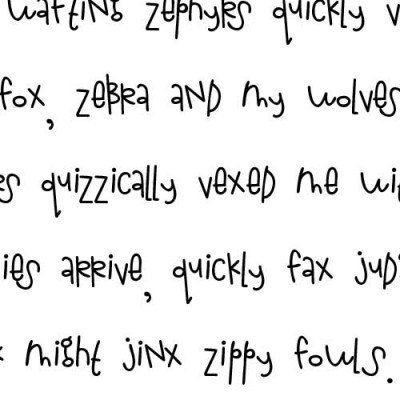 wafting zephyrs quickly v
fox, zebra and my wolves
es quizzically vexed me wi
ies arrive, quickly fax jud
might jinx zippy fowls.